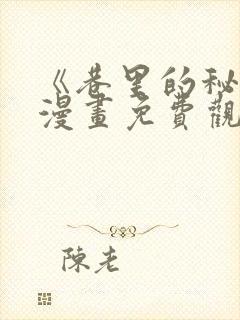 《巷里的秘
漫畫免費觀
陳老